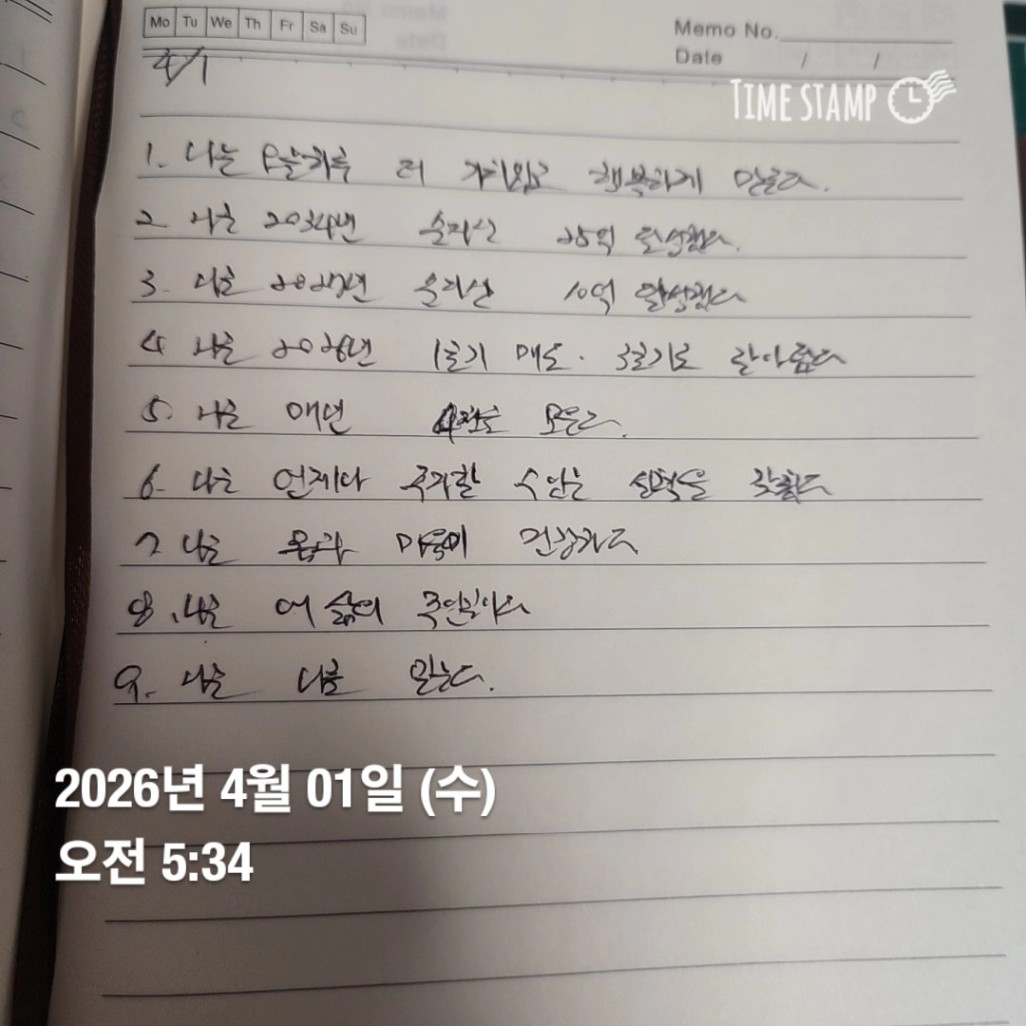 Mo Tu We Th Fr Sa Su
Memo No.
Date / /
4/1
TIME STAMP
1. 나는 하루 더 행복하게 만든다.
2. 나는 2034년 순자산 25억 달성했다.
3. 나는 2027년 순자산 10억 달성했다
4 나는 2026년 1호기 매도. 3호기로 갈아탔다
5. 나는 매년 모은다.
6. 나는 언제나 투자할 수 있는 실력을 갖췄다
7 나는 몸과 마음이 건강하다
8. 나는 내 삶의 주인이다
9. 나는 나를 믿는다.
2026년 4월 01일 (수)
오전 5:34